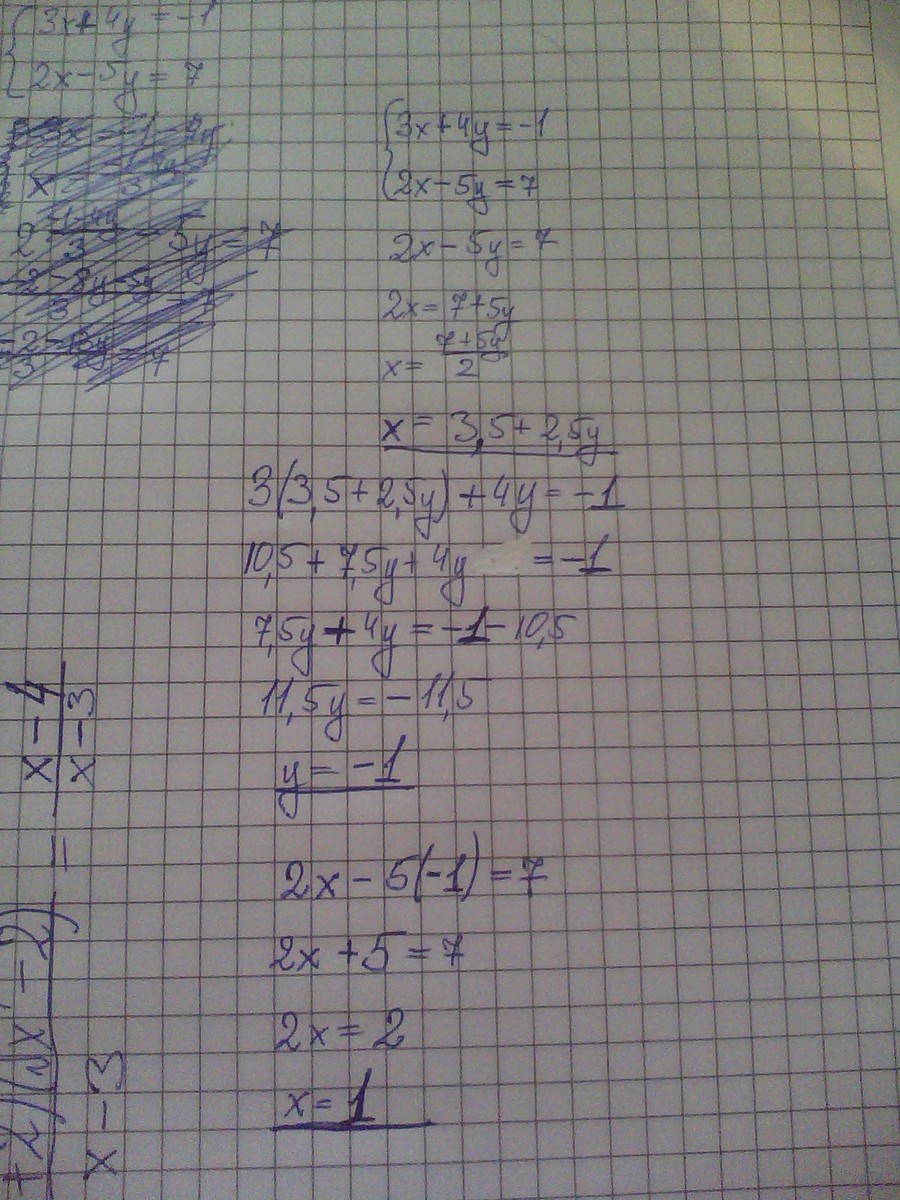 3x+4y = -1
2x-5y = 7
3x+4y=-1
2x-5y=7
2x-5y=7
2x= 7+5y
x= 7+5y/2
x= 3,5+2,5y
3(3,5+2,5y)+4y=-1
10,5+7,5y+4y =-1
7,5y+4y=-1-10,5
11,5y=-11,5
y=-1
2x-5(-1)=7
2x+5=7
2x=2
x=1
x-3 = x-4/x-3